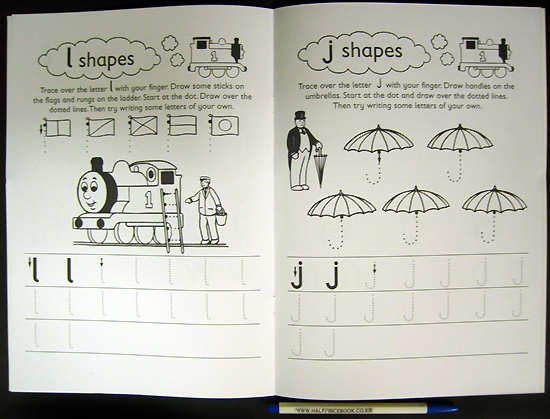 l shapes
Trace over the letter l with your finger. Draw some sticks on
the flags and rungs on the ladder. Start at the dot. Draw over the
dotted lines. Then try writing some letters of your own.
1
1
l l l l l l l
l l l l l l l
l l
j shapes
1
Trace over the letter j with your finger. Draw handles on the
umbrellas. Start at the dot and draw over the dotted lines.
Then try writing some letters of your own.
j j j j j j j
j j j j j j j
j j
WWW.HALFPRICEBOOK.CO.KR